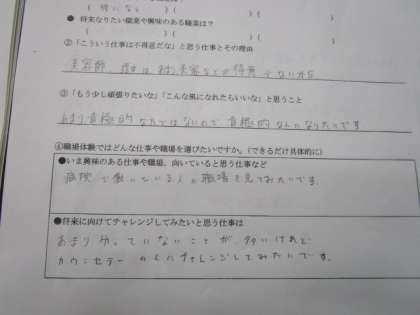 ( 特になし )( )( )
● 将来なりたい職業や興味のある職業は?
( )( )( )
②「こういう仕事は不得意だな」と思う仕事とその理由
美容師 理由は 美容などが得意でないから
③「もう少し頑張りたいな」「こんな風になれたらいいな」と思うこと
あまり積極的な人ではないので 積極的な人になりたいです
④職場体験ではどんな仕事や職場を選びたいですか。(できるだけ具体的に)
●いま興味のある仕事や職場、向いていると思う仕事など
病院で働いている人の職場を見てみたいです.
●将来に向けてチャレンジしてみたいと思う仕事は
あまり分っていないことが、多いけれど
カウンセラーの人にチャレンジしてみたいです。